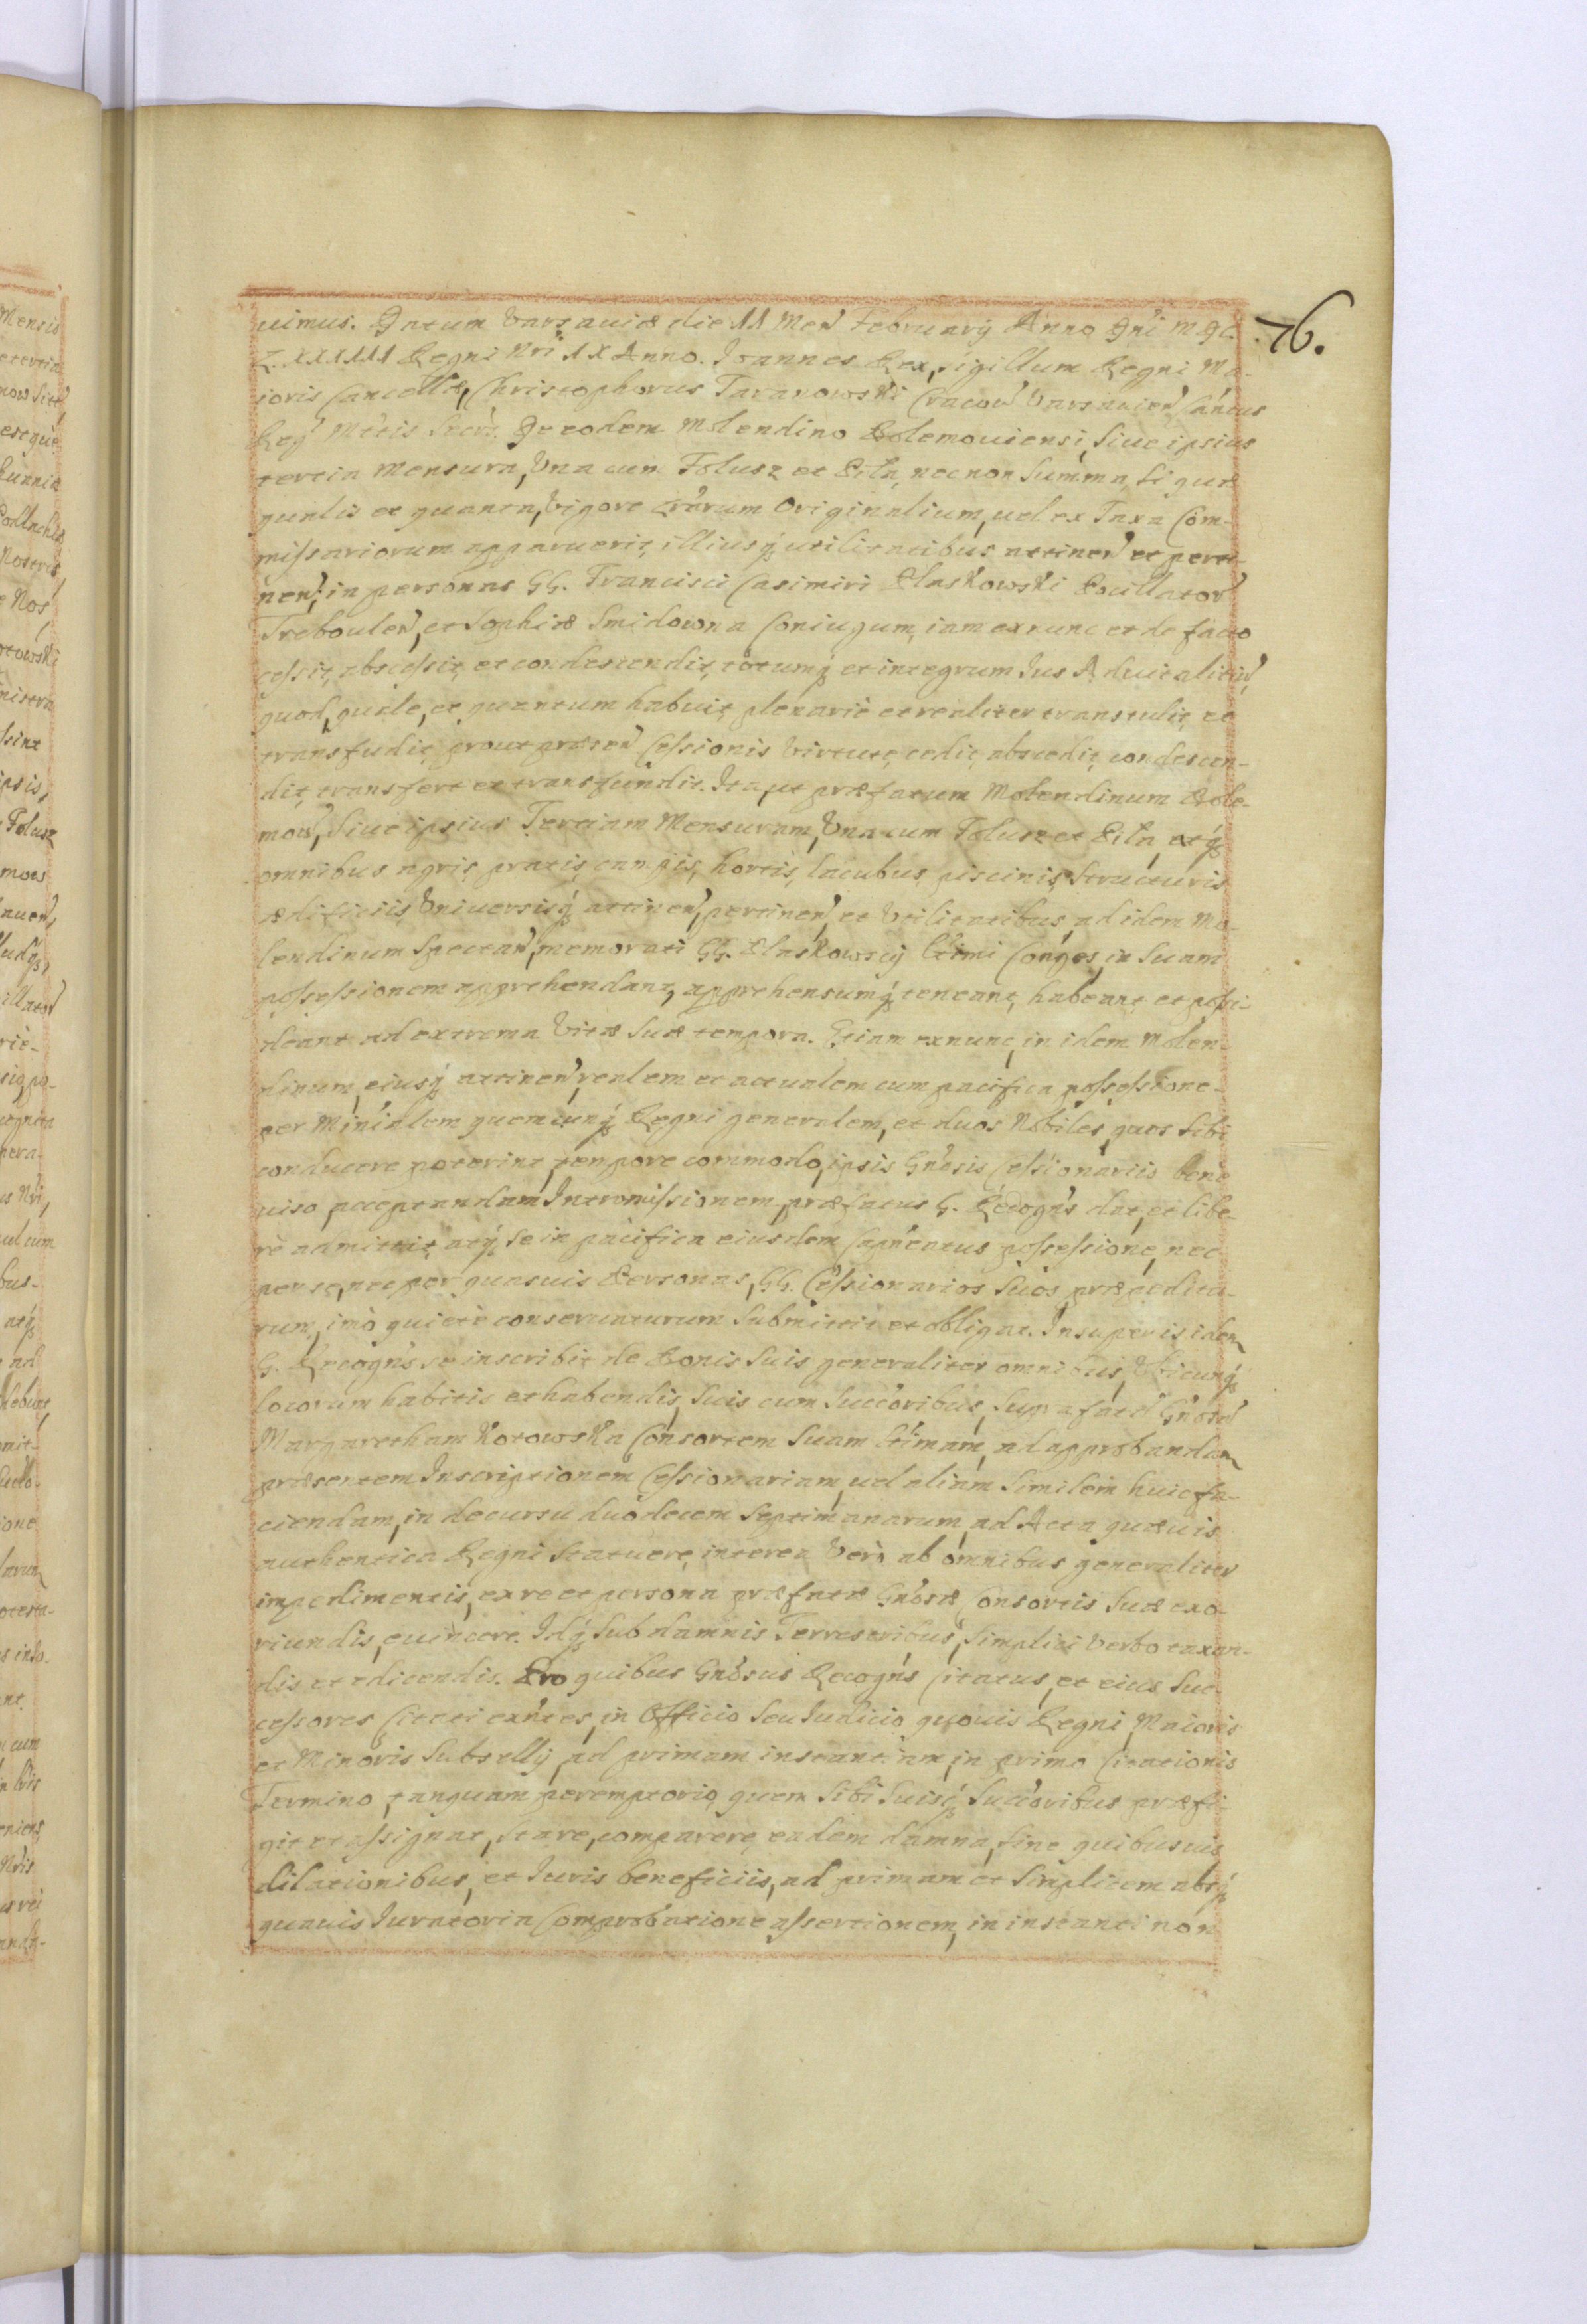 76.
uimus. Datum Varsauiæ die 11 Men̄ February Anno Dn̄i MDC.
LXXXIII Regni Nrī IX Anno. Ioannes Rex, sigillum Regni Ma-
ioris Cancellæ, Christophorus Taranowski Cracou̅ Varsauien̄ Cancus
Regᵉ Mttis Secr̄t. De eodem Molendino Bolemouiensi, siue ipsius
tertia mensura, Vna cum Folusz et Pila, nec non Summa, si quæ
qualis et quanta, vigore Lr̄arum Originalium, uel ex Taxa Com-
missariorum apparuerit, illiusq̄ utilitatibus attinen̄ et perti-
nen̄, in personas GG. Francisci Casimiri Plaskowski Pocillator̄
Treboulen̄, et Sophiæ Smidowna Coniugum, iam ex nunc et de facto
cessit, abscessit, et condescendit, totumq̄ et integrum Ius Aduitalitiu̅,
quod, quale, et quantum habuit, plenariè et realiter transtulit, et
transfudit, prout præsen̄ Cessionis Virtute, cedit, abscedit, condescen-
dit, transfert et transfundit. Ita, ut præfatum Molendinum Bole-
mou̅, siue ipsius Tertiam Mensuram, Vna cum Folusz et Pila, atq̄
omnibus agris, pratis, campis, hortis, lacubus, piscinis, structuris
ædificiis, Vniversisq̄ attinen̄, pertinen̄, et Vtilitatibus, ad idem Mo-
lendinum Spectan̄, memorati GG. Plaskowscy Lt̄imi Conges, in Suam
possessionem apprehendant, apprehensumq̄ teneant, habeant et possi-
deant ad extrema Vitæ Suæ tempora. Etiam ex nunc, in idem Molen-
dinum, eiusq̄ attinen̄, realem et actualem cum pacifica possessione
per Min̄ialem quemcunq̄ Regni generalem, et duos Nobiles, quos Sibi
conducere poterint, tempore commodo, ipsis Gn̄osis Cessionariis bene
uiso, acceptandam Intromissionem, præfatus G. Recogn̄s dat, et libe-
rè admittit, atq̄ Se in pacifica eiusdem possessione, nec
per se, nec per quasuis Personas, GG. Cessionarios Suos, præpedita-
rum, imò quietè conseruaturum Submittit et obligat. Insuper is idem
G. Recogn̄s se inscribit de Bonis Suis generaliter omnibus, Vbicunq̄
locorum habitis et habendis, Suis cum Succ̄oribus, Suprafatā Gn̄osā
Margaretham Kotowska Consortem Suam Lt̄imam, ad approbandam
præsentem Inscriptionem Cessionariam, uel aliam Similem huic fa-
ciendam, in decursu duodecem Septimanarum, ad Acta quæuis
authentica Regni Statuere, interea Verò ab omnibus generaliter
impedimentis, ex re et persona præfatæ Gn̄osæ Consortis Suæ exo-
riundis, euincere. Idq̄ Sub damnis Terrestribus, Simplici Verbo taxan-
dis et edicendis. Pro quibus Gn̄osus Recogn̄s Citatus, et eius Suc-
cessores Citati exn̄tes, in Officio Seu Iudicio quouis Regni, Maioris
et Minoris Subsellij, ad primam instantiam, in primo Citationis
Termino, tanquam peremptorio, quem Sibi Suisq̄ Succ̄oribus præfi-
git et assignat, Stare, comparere, eadem damna, sine quibusuis
dilationibus, et Iuris beneficiis, ad primam et Simplicem absq̄
quauis Iuratoria Comprobatione assertionem, in instanti non